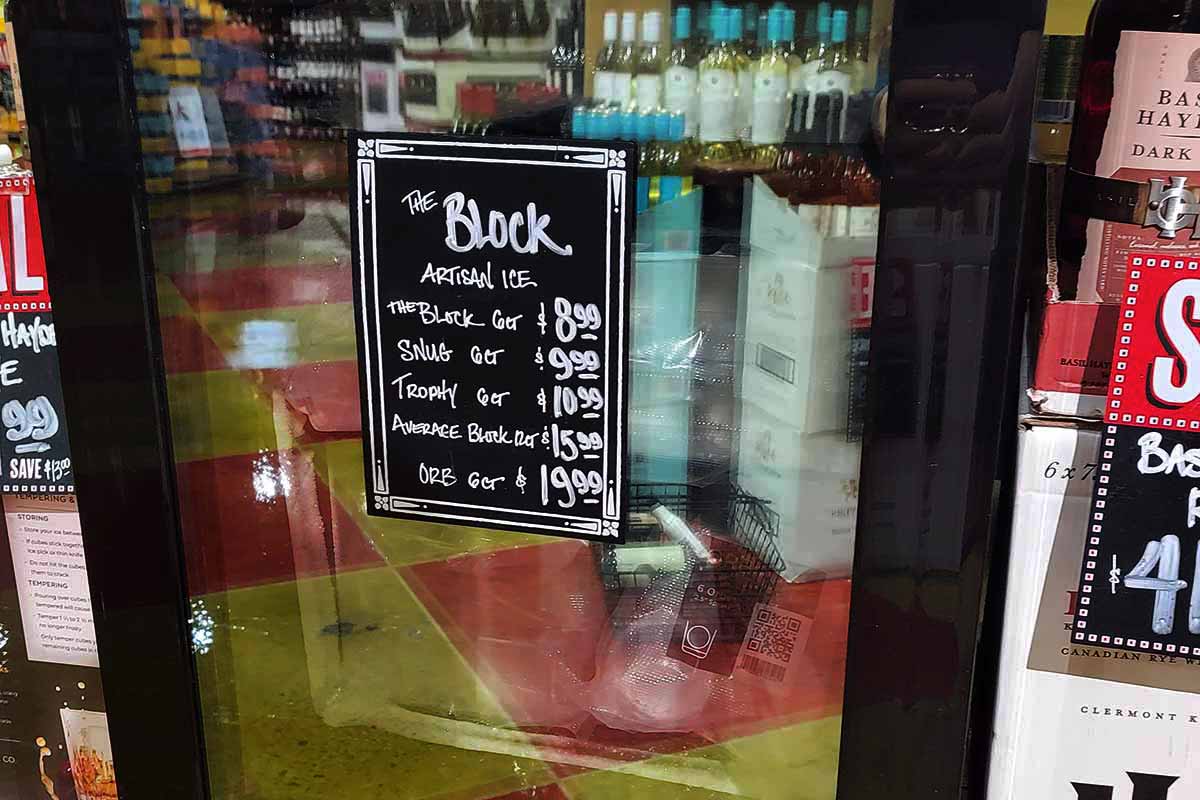 THE BLOCK
ARTISAN ICE
THE BLOCK 6CT $8.99
SNUG 6CT $9.99
TROPHY 6CT $10.99
AVERAGE BLOCK 12CT $15.99
ORB 6CT $19.99
L
HAYD
E
99
SAVE $13.00
TEMPERING &
STORING
Store your ice between
If cubes stick together
ice pick or thin knife
Do not hit the cubes
them to crack.
TEMPERING
Pouring over cubes
tempered will cause
Temper 1 ½ to 2 ½ m
no longer frosty
Only temper cubes y
remaining cubes in
CO
GO
BAS
HAY
DARK
BASIL HAY
S
BAS
R
$4
6x7
CANADIAN RYE W
CLERMONT K